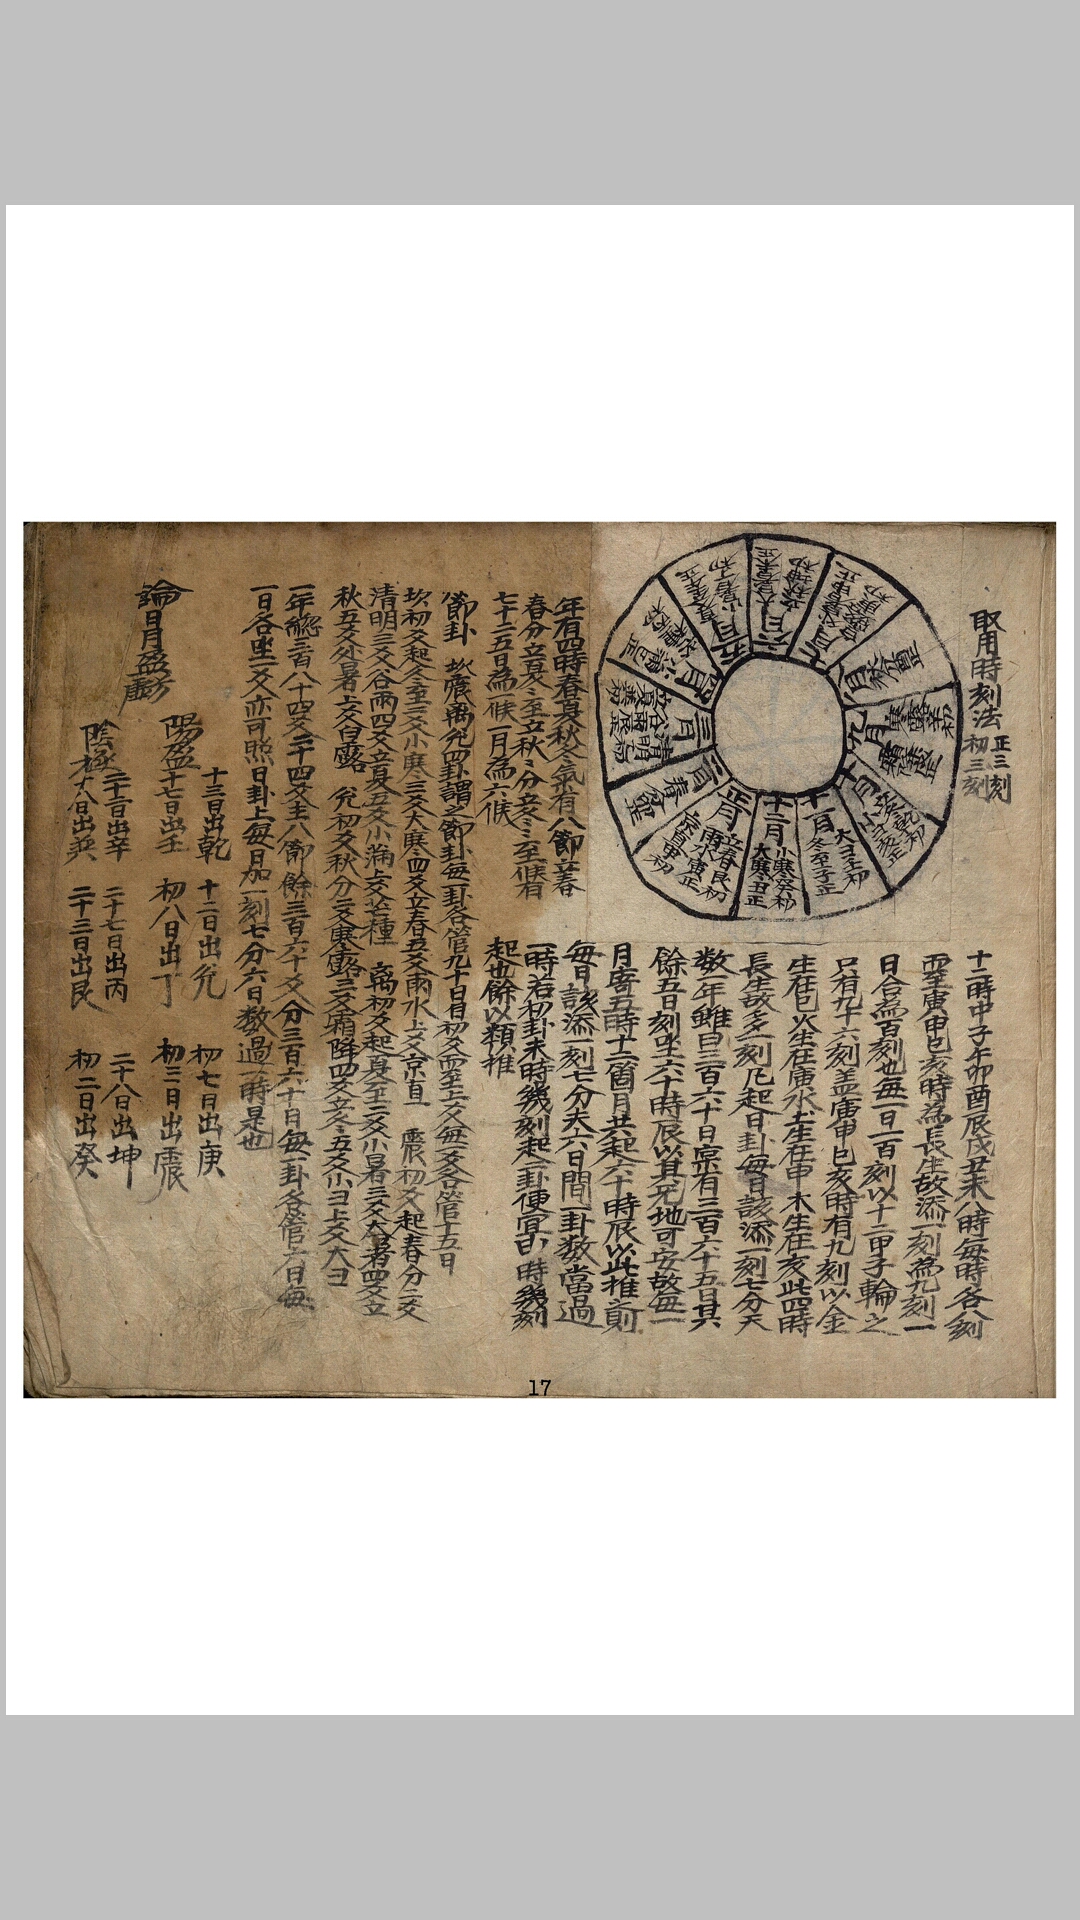 取用時刻法
正三刻
初三刻
十二時中子午卯酉辰戌丑未八時每時各八刻
而至寅申巳亥時為長生故添一刻為九刻一
日合為百刻也每一日一百刻以十二甲子輪之
只有九十六刻盖寅申巳亥時有九刻以金
生在巳火生在寅水土生在申木生在亥此四時
長生故多一刻凡起日卦每日該添一刻七分夫
数一年雖曰三百六十日宲有三百六十五日其
餘五日刻坐六十時辰以其无地可安故每一
月寄五時十二箇月共起六十時辰以此推之則
每日該添一刻七分夫六日間一卦数當過
一時若初卦未時幾刻起合卦便宜日八時幾刻
起也餘以類推
正月
立春艮初
雨水寅正
二月
三月
六月
七月
八月
九月
十月
十一月
大ヨ壬初
冬至子正
十二月
小寒癸初
大寒丑正
年有四時春夏秋冬氣有八節立春
春分立夏夏至立秋秋分立冬冬至候有
七十二五日為一候一月為六候
節卦 坎震离兌四卦謂之節卦每一卦各管九十日自初爻而至上爻每一爻各管十五日
坎初爻起冬至二爻小寒三爻大寒四爻立春五爻雨水上爻京直 震初爻起春分二爻
清明三爻谷雨四爻立夏五爻小滿上爻芒種 离初爻起夏至二爻小暑三爻大暑四爻立
秋五爻处暑上爻白露 兌初爻秋分二爻寒露三爻霜降四爻立冬五爻小ヨ上爻大ヨ
一年総三百八十四爻二十四爻主八節餘三百六十爻分三百六十日每一卦各管六日每
一日各坐一爻亦可照日卦上每日加一刻七分六日数過一時是也
論日月盈虧
陽盈
十三日出乾 十二日出兌 初七日出庚
十七日出壬 初八日出丁 初二日出震
陰極
二十二日出辛 二十七日出丙 二十八日出坤
十八日出巽 二十三日出艮 初二日出癸
17